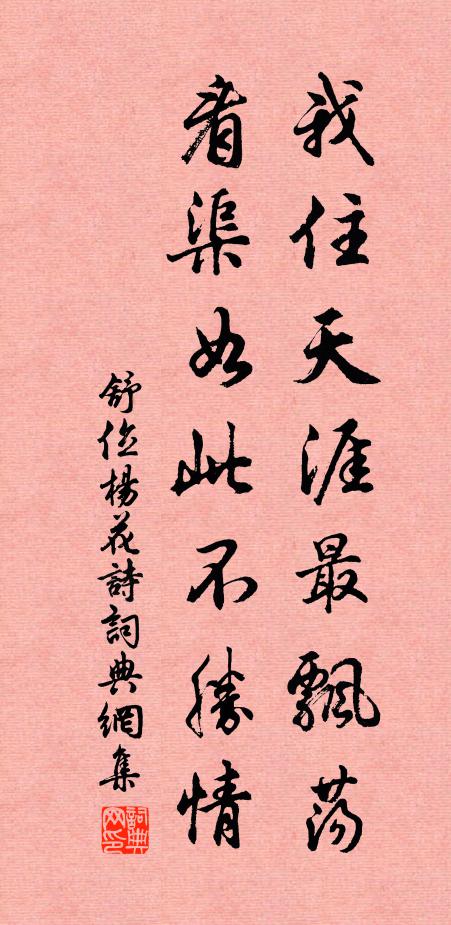 我住天涯最飄蕩
看渠如此不勝情
舒位楊花詩詞典網集
詞典
网印